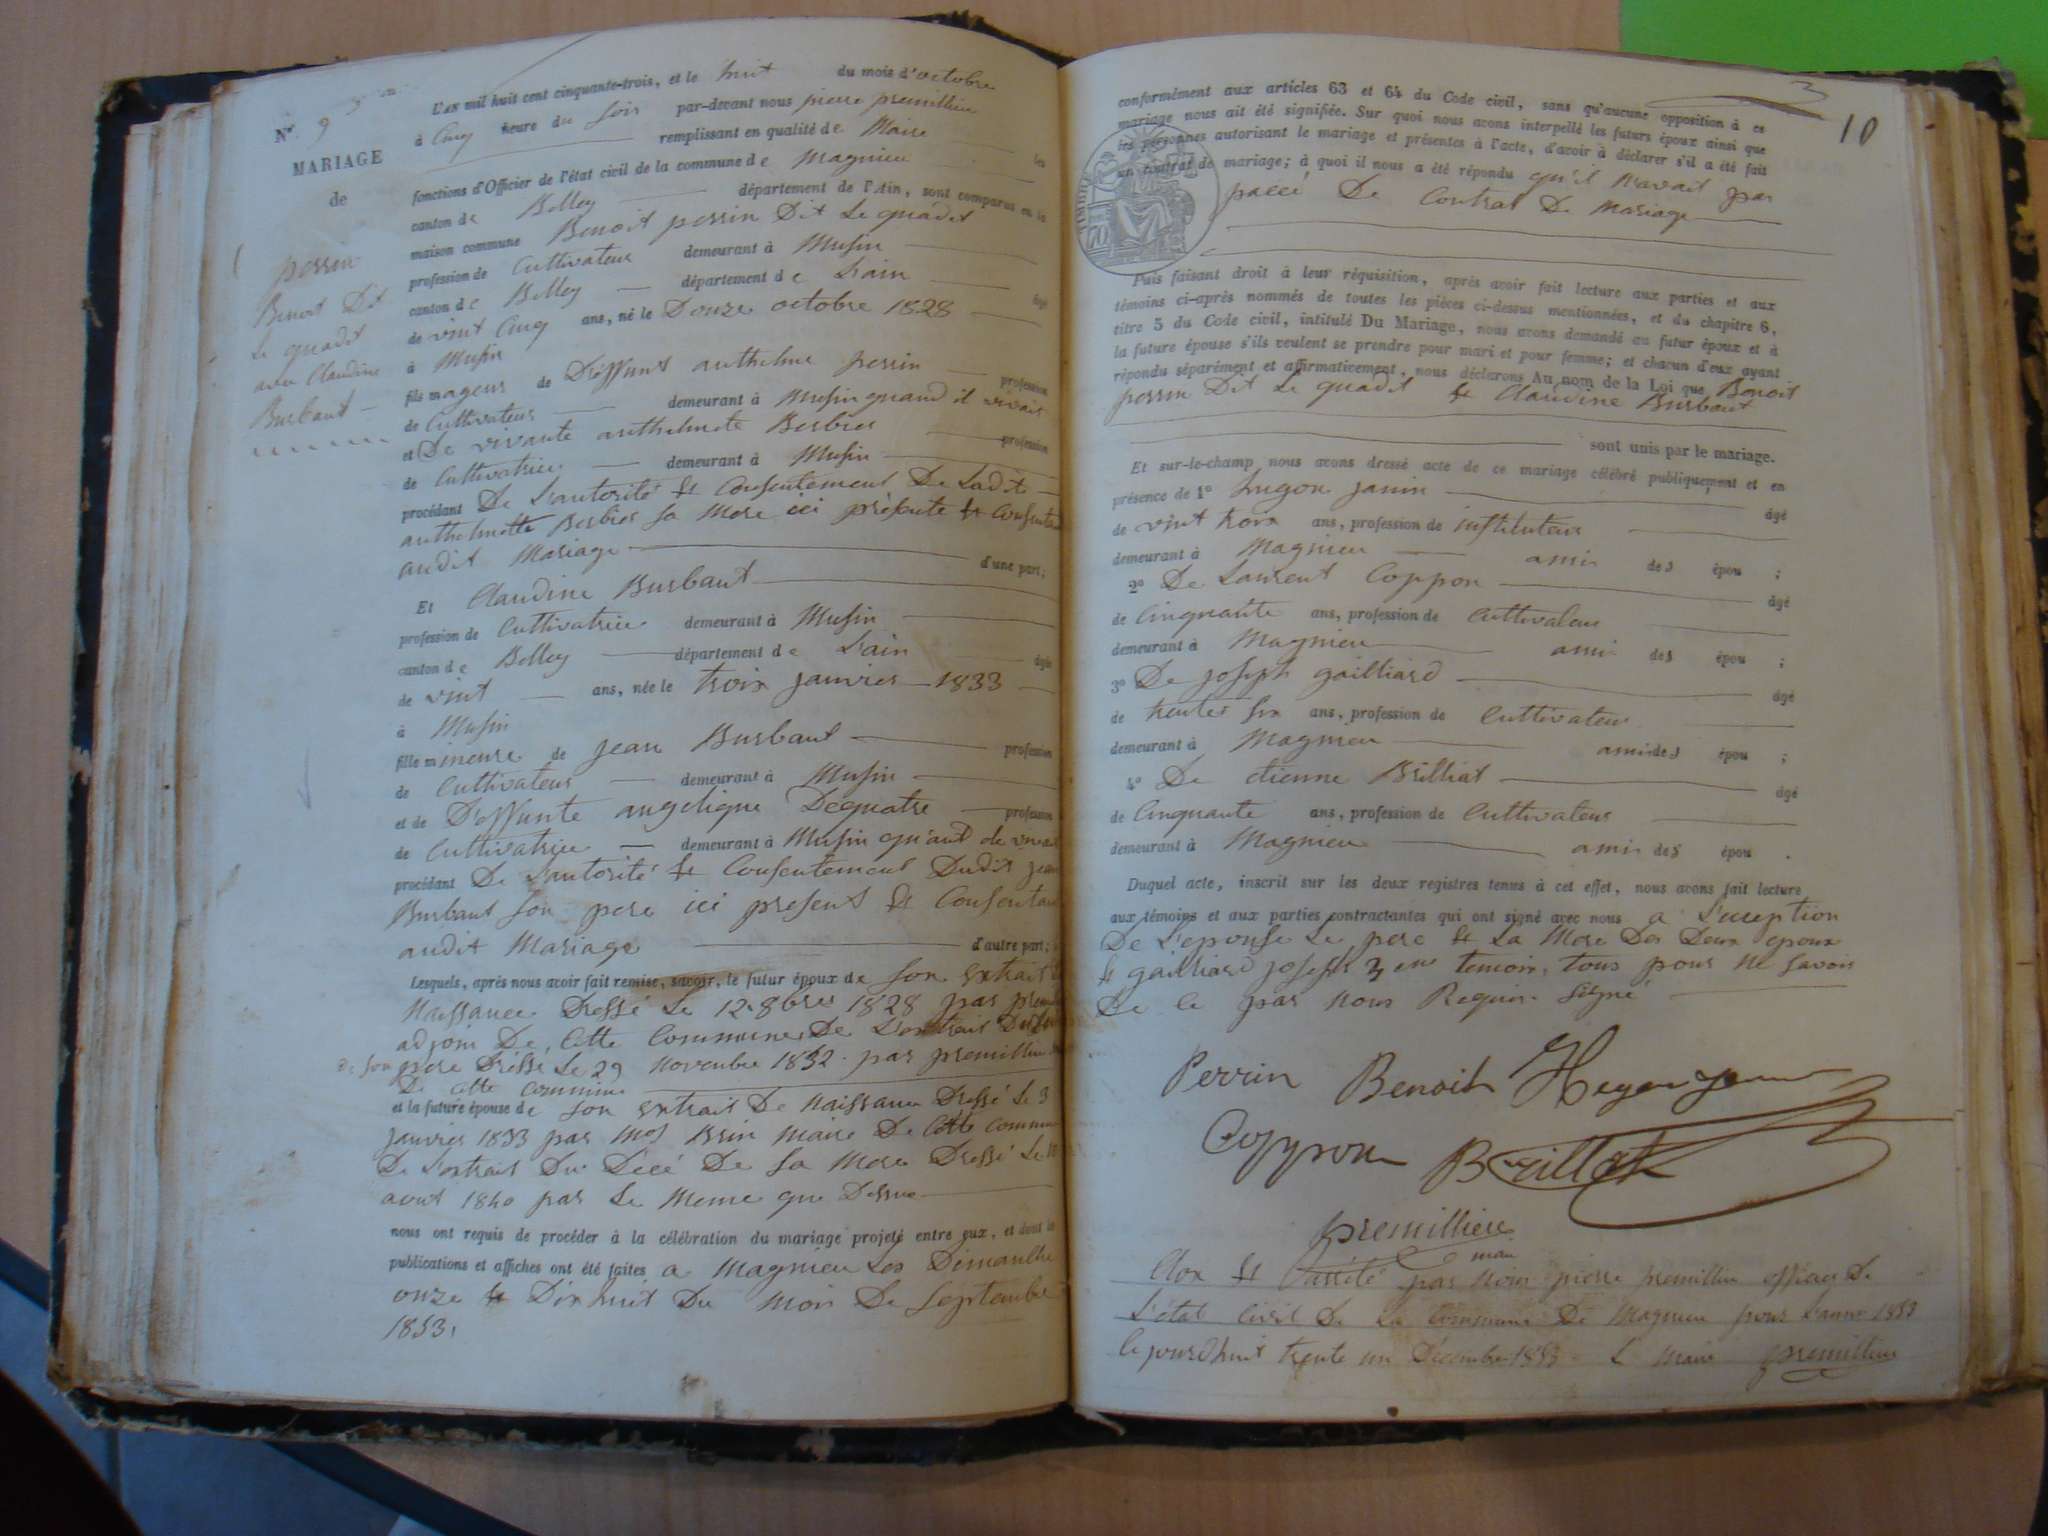 N° 9
MARIAGE
de
perrin
Benoit Dit
Le quadit
avec Claudine
Burbaut
L'AN mil huit cent cinquante-trois, et le huit du mois d'octobre
à Cinq heure du Soir par-devant nous pierre premillieu
remplissant en qualité de Maire les
fonctions d'Officier de l'état civil de la commune de Magnieu
canton de Belley département de l'Ain, sont comparus en la
maison commune Benoit perrin Dit Le quadit
profession de Cultivateur demeurant à Musin
canton de Belley département de L'ain âgé
de vint Cinq ans, né le Douze octobre 1828
à Musin
fils mageur de Déffunt anthelme perrin profession
de Cultivateur demeurant à Musin quand il vivait
et De vivante anthelmete Berbier profession
de Cultivatrice demeurant à Musin
procédant De L'autorité et Consentement De Ladite
anthelmette Berbier sa Mere ici présente et Consentant
audit Mariage d'une part;
Et Claudine Burbaut
profession de Cultivatrice demeurant à Musin
canton de Belley département de L'ain âgée
de vint ans, née le trois janvier 1833
à Musin
fille mineure de jean Burbaut profession
de Cultivateur demeurant à Musin
et de Déffunte angelique Dequatre profession
de Cultivatrice demeurant à Musin qu'ant de vivait
procédant De L'autorité et Consentement Dudit jean
Burbaut son pere ici present et Consentant
audit Mariage d'autre part;
Lesquels, après nous avoir fait remise, savoir, le futur époux de son extrait
Naissance Dressé Le 12 8bres 1828 par
adjoin De Cette Commune De L'extrait
de son pere Dréssé Le 29 Novembre 1832 par premillieu
De cette commune
et la future épouse de son extrait De Naissance Dressé Le 3
janvier 1833 par Brin Maire De Cette Commune
De L'extrait Du Décé De Sa Mere Dressé Le
aout 1840 par Le Meme que Dessus
nous ont requis de procéder à la célébration du mariage projeté entre eux, et dont les
publications et affiches ont été faites a Magnieu Les Dimanche
onze et Dix huit Du Mois De Septembre
1853.
10
conformément aux articles 63 et 64 du Code civil, sans qu'aucune opposition à ce
mariage nous ait été signifiée. Sur quoi nous avons interpellé les futurs époux ainsi que
les personnes autorisant le mariage et présentes à l'acte, d'avoir à déclarer s'il a été fait
un contrat de mariage; à quoi il nous a été répondu qu'il N'avait pas
paccé De Contrat De Mariage
Puis faisant droit à leur réquisition, après avoir fait lecture aux parties et aux
témoins ci-après nommés de toutes les pièces ci-dessus mentionnées, et du chapitre 6,
titre 5 du Code civil, intitulé Du Mariage, nous avons demandé au futur époux et à
la future épouse s'ils veulent se prendre pour mari et pour femme; et chacun d'eux ayant
répondu séparément et affirmativement, nous déclarons Au nom de la Loi que Benoit
perrin Dit Le quadit et Claudine Burbaut
sont unis par le mariage.
Et sur-le-champ nous avons dressé acte de ce mariage célébré publiquement et en
présence de 1° hugon janin âgé
de vint trois ans, profession de instituteur
demeurant à Magnieu amis des épou ;
2° De Laurent Coppon âgé
de Cinquante ans, profession de Cultivateur
demeurant à Magnieu amis des épou ;
3° De joseph gailliard âgé
de trentes six ans, profession de Cultivateur
demeurant à Magnieu amis des épou ;
4° De étienne Brilliat âgé
de Cinquante ans, profession de Cultivateur
demeurant à Magnieu amis des épou .
Duquel acte, inscrit sur les deux registres tenus à cet effet, nous avons fait lecture
aux témoins et aux parties contractantes qui ont signé avec nous a L'exception
De L'epouse Le pere et La Mere Des Deux epoux
et gailliard joseph 3eme temoin, tous pour Ne Savoir
De ce par Nous Requis Signé
Perrin Benoit
Coppon Brillat
premillieu
maire
Clox et arrété par Nous pierre premillieu officier De
L'état Civil De La commune De Magnieu pour L'anné 1853
Ce jourd'huit trente un Décembre 1853 L Maire premillieu